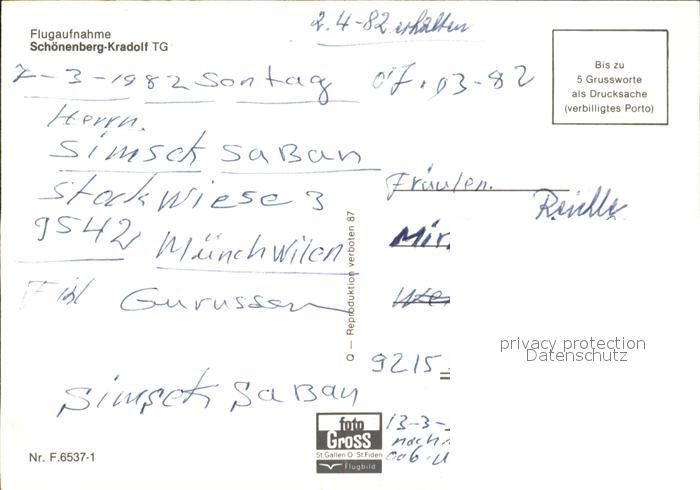 2.4-82 erhalten
Flugaufnahme
Schönenberg-Kradolf TG
7-3-1982 Sontag 07.03-82
Bis zu
5 Grussworte
als Drucksache
(verbilligtes Porto)
Herrn.
Simsek SaBan
Stockwiese 3
9542 Münchwilen
Fiel Gurussen
Simsek SaBan
Fräulen.
Mir.
9215
13-3-
nach
Q — Reproduktion verboten 87
privacy protection
Datenschutz
foto
Gross
St.Gallen O St.Fiden
Flugbild
Nr. F.6537-1